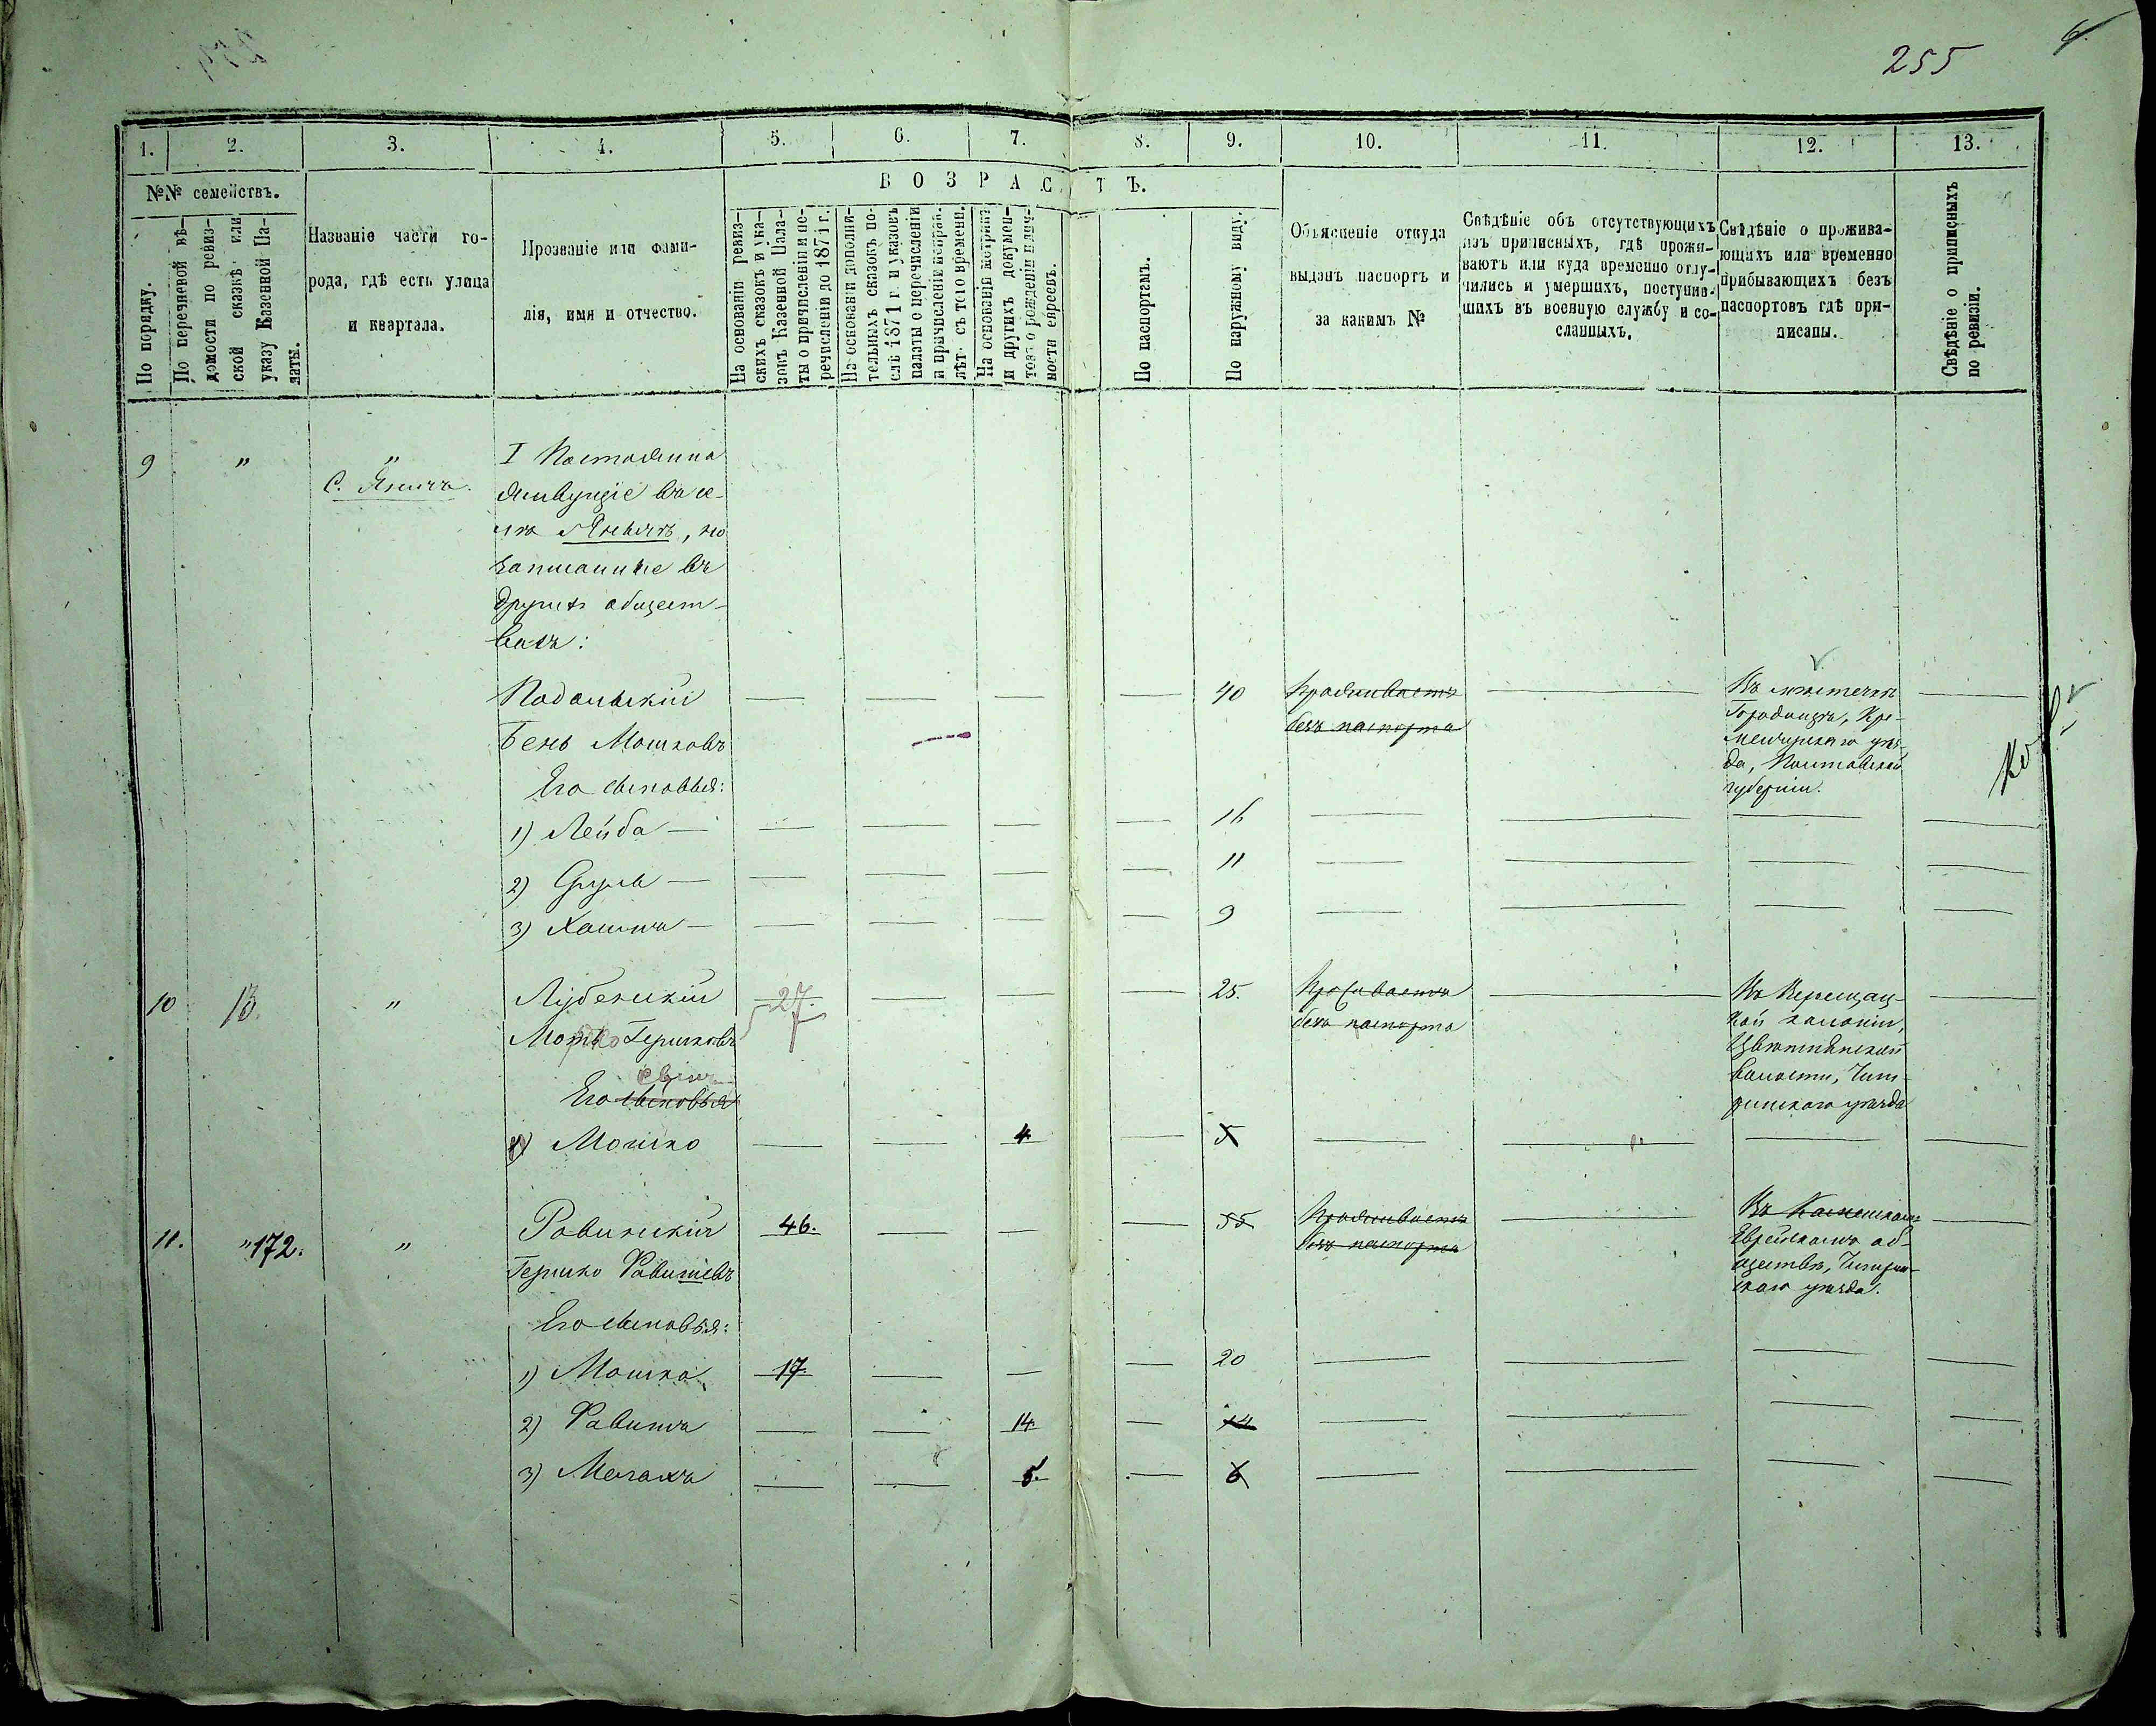 255
6.
1. 2. 3. 4. 5. 6. 7. 8. 9. 10. 11. 12. 13.
№№ семействъ.
По порядку.
По перечневой вѣ-
домости по ревиз-
ской сказкѣ или
указу Казенной Па-
латы.
Названіе части го-
рода, гдѣ есть улица
и квартала.
Прозваніе или фами-
лія, имя и отчество.
ВОЗРАСТЪ.
На основаніи ревиз-
скихъ сказокъ и ука-
зокъ Казенной Пала-
ты о причисленіи и пе-
речисленіи до 1871 г.
На основаніи дополни-
тельныхъ сказокъ по-
слѣ 1871 г. и указовъ
палаты о перечисленіи
и причисленіи неправ.
лѣт. съ того времени.
На основаніи метрикъ
и другихъ докумен-
товъ о рожденіи и лич-
ности евреевъ.
По паспортамъ.
По наружному виду.
Объясненіе откуда
выданъ паспортъ и
за какимъ №
Свѣдѣніе объ отсутствующихъ
изъ приписныхъ, гдѣ прожи-
ваютъ или куда временно отлу-
чились и умершихъ, поступив-
шихъ въ военную службу и со-
сланныхъ.
Свѣдѣніе о прожива-
ющихъ или временно
прибывающихъ безъ
паспортовъ гдѣ при-
писаны.
Свѣдѣніе о приписныхъ
по ревизіи.
9 " "
С. Янича.
I Постоянно
живущіе въ се-
лѣ Яничѣ, но
записанные въ
другихъ общест-
вахъ:
Подольскій — — — — 40 Проживаетъ — Въ мѣстечкѣ —
Бень Мошковъ безъ паспорта Городищѣ, Кре-
менчугскаго уѣз-
да, Полтавской
губерніи.
Его сыновья:
1) Лейба — — — — — 16 — — — —
2) Сруль — — — — — 11 — — — —
3) — — — — 9 — — — —
10 13. " Лубенскій 27. — — — 25. Проживаетъ — Въ Верещац- —
Мошко Гершковъ безъ паспорта кой колоніи,
волости, Чиги-
ринскаго уѣзда
Его сыновья
сынъ
1) Мошко — — 4 — 5 — — — —
11. "172. " Равинскій 46. — — — 55 Проживаетъ — Въ —
Гершко безъ паспорта Еврейскомъ об-
ществѣ, Чигирин-
скаго уѣзда.
Его сыновья:
1) Мошко 17. — — — 20 — — — —
2) — — 14. — 14 — — — —
3) — — 5. — 6 — — — —